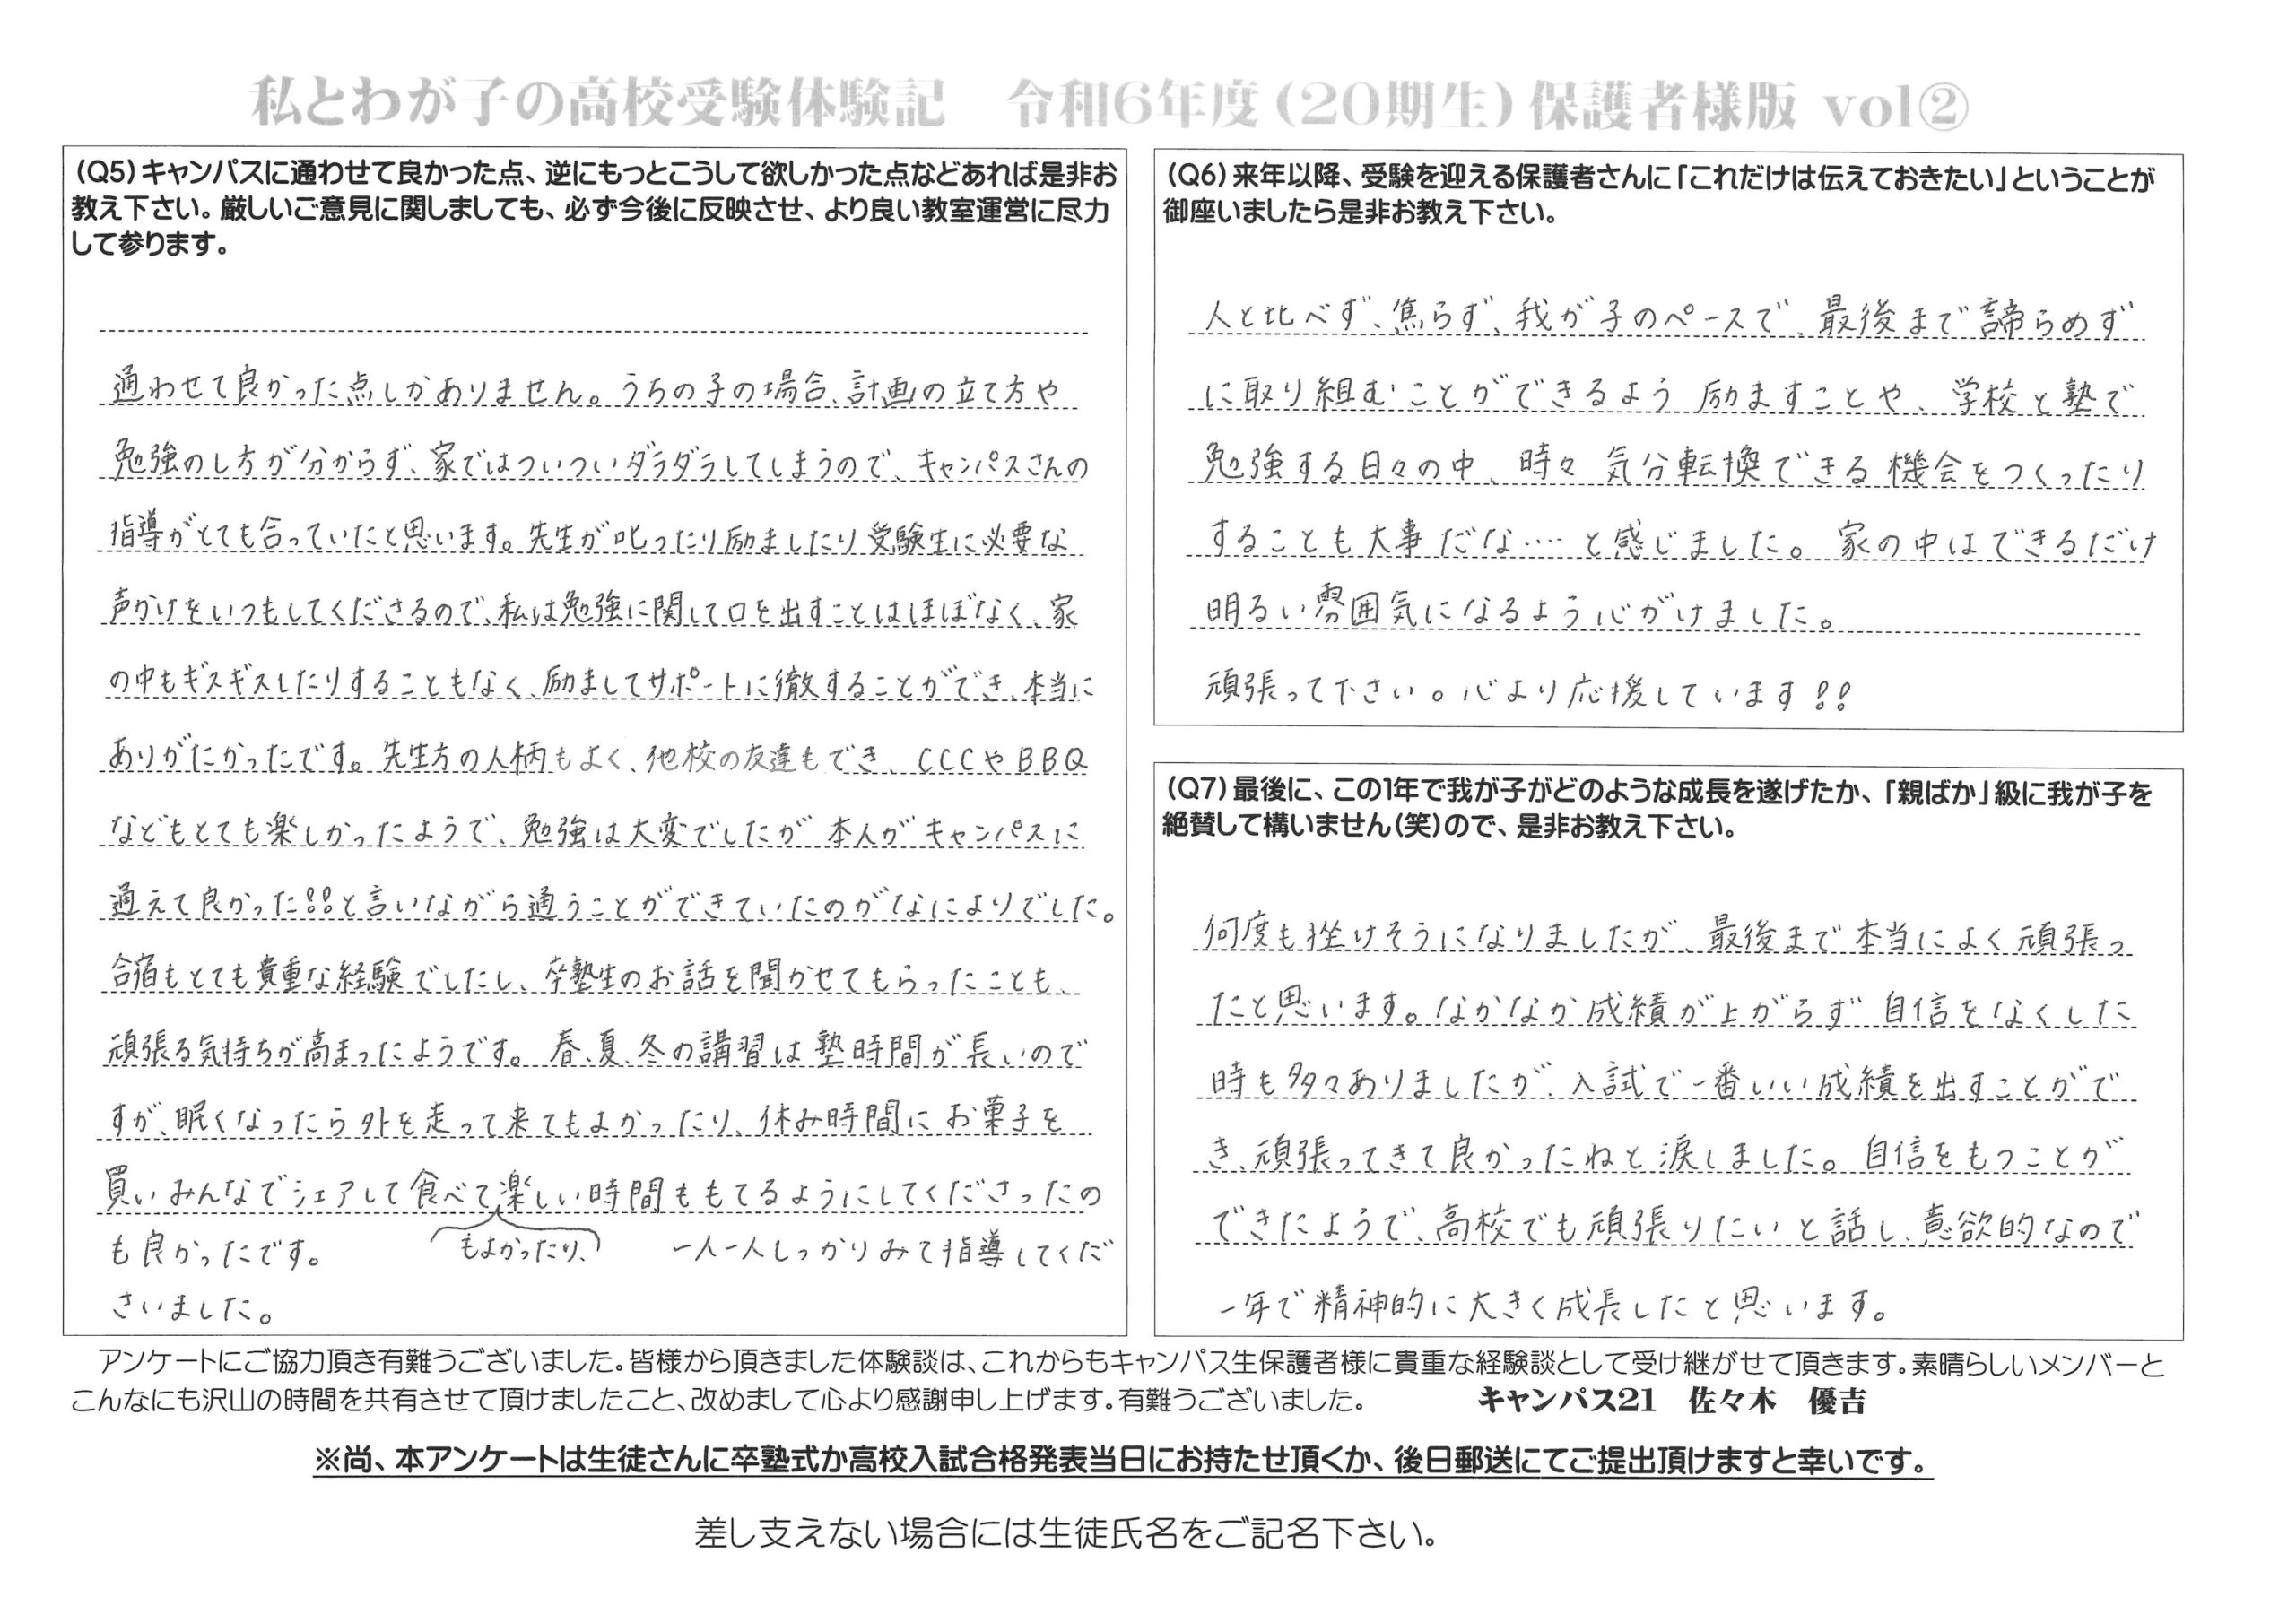 私とわが子の高校受験体験記　令和6年度(20期生)保護者様版 vol②
(Q5)キャンパスに通わせて良かった点、逆にもっとこうして欲しかった点などあれば是非お
教え下さい。厳しいご意見に関しましても、必ず今後に反映させ、より良い教室運営に尽力
して参ります。
通わせて良かった点しかありません。うちの子の場合、計画の立て方や
勉強のし方が分からず、家ではついついダラダラしてしまうので、キャンパスさんの
指導がとても合っていたと思います。先生が叱ったり励ましたり受験生に必要な
声かけをいつもしてくださるので、私は勉強に関して口を出すことはほぼなく、家
の中もギスギスしたりすることもなく、励ましてサポートに徹することができ、本当に
ありがたかったです。先生方の人柄もよく、他校の友達もでき、CCCやBBQ
などもとても楽しかったようで、勉強は大変でしたが本人がキャンパスに
通えて良かった!!と言いながら通うことができていたのがなによりでした。
合宿もとても貴重な経験でしたし、卒塾生のお話を聞かせてもらったことも、
頑張る気持ちが高まったようです。春、夏、冬の講習は塾時間が長いので
すが、眠くなったら外を走って来てもよかったり、休み時間にお菓子を
買いみんなでシェアして食べて楽しい時間ももてるようにしてくださったの
も良かったです。　もよかったり、　一人一人しっかりみて指導してくだ
さいました。
(Q6)来年以降、受験を迎える保護者さんに「これだけは伝えておきたい」ということが
御座いましたら是非お教え下さい。
人と比べず、焦らず、我が子のペースで、最後まで諦らめず
に取り組むことができるよう励ますことや、学校と塾で
勉強する日々の中、時々気分転換できる機会をつくったり
することも大事だな……と感じました。家の中はできるだけ
明るい雰囲気になるよう心がけました。
頑張って下さい。心より応援しています!!
(Q7)最後に、この1年で我が子がどのような成長を遂げたか、「親ばか」級に我が子を
絶賛して構いません(笑)ので、是非お教え下さい。
何度も挫けそうになりましたが、最後まで本当によく頑張っ
たと思います。なかなか成績が上がらず自信をなくした
時も多々ありましたが、入試で一番いい成績を出すことがで
き、頑張ってきて良かったねと涙しました。自信をもつことが
できたようで、高校でも頑張りたいと話し、意欲的なので
一年で精神的に大きく成長したと思います。
アンケートにご協力頂き有難うございました。皆様から頂きました体験談は、これからもキャンパス生保護者様に貴重な経験談として受け継がせて頂きます。素晴らしいメンバーと
こんなにも沢山の時間を共有させて頂けましたこと、改めまして心より感謝申し上げます。有難うございました。　キャンパス21　佐々木　優吉
※尚、本アンケートは生徒さんに卒塾式か高校入試合格発表当日にお持たせ頂くか、後日郵送にてご提出頂けますと幸いです。
差し支えない場合には生徒氏名をご記名下さい。